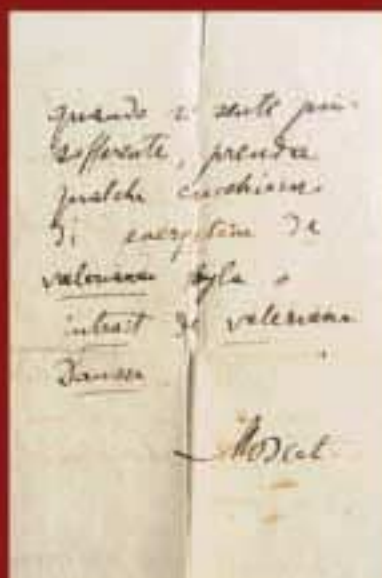 quando si sente più
sofferente, prenda
qualche cucchiaino
di energetène de
valeriane Byla o
intrait de valeriane
Dausse
Moscati